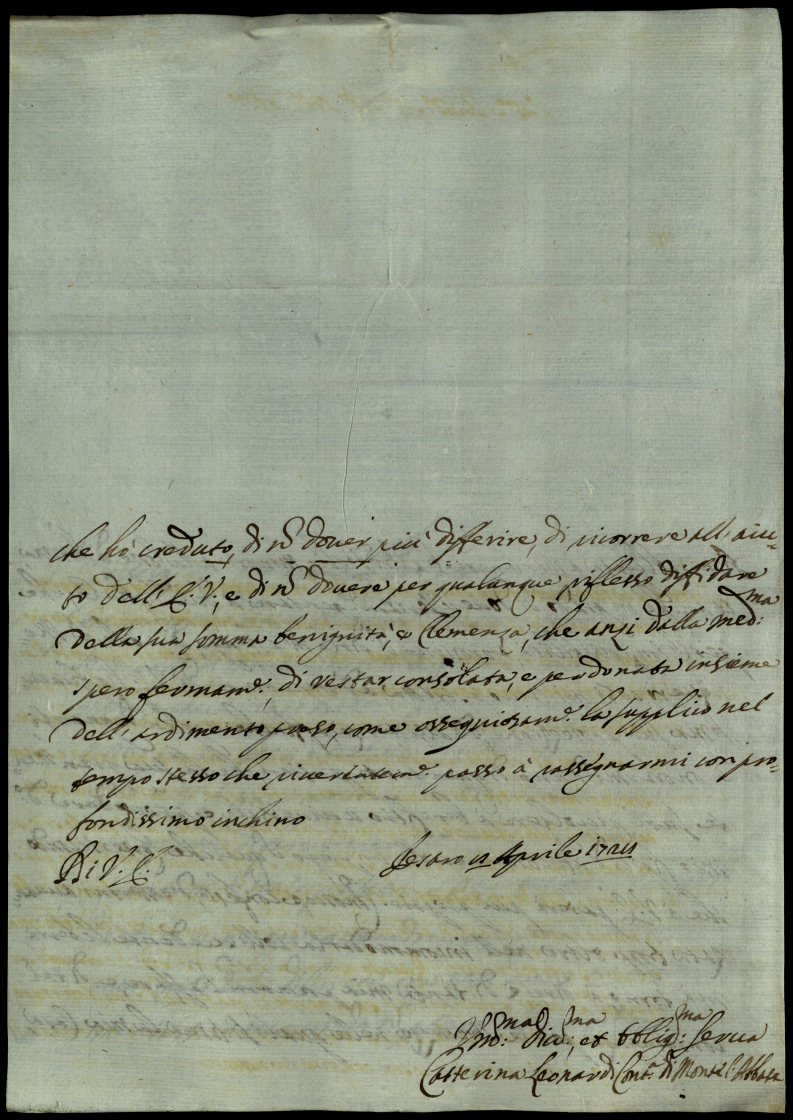 che hò creduto, di nõ dover più differire, di ricorrere all' aiu-
to dell' E: V:, e di nõ dovere per qualunque riflesso diffidare
della sua somma benignità, e Clemenza, che anzi dalla med:ma
spero fermam:e, di restar consolata, e perdonata insieme
dell' ardimento preso, come ossequiosam:e la supplico nel
tempo stesso che riverentem:e passo à rassegnarmi con pro-
fondissimo inchino
Di V: E:
Pesaro Aprile
Um:ma Div:ma, et Obblig:ma Serva
Catterina Leonardi Cont:a di Monte l'Abbate